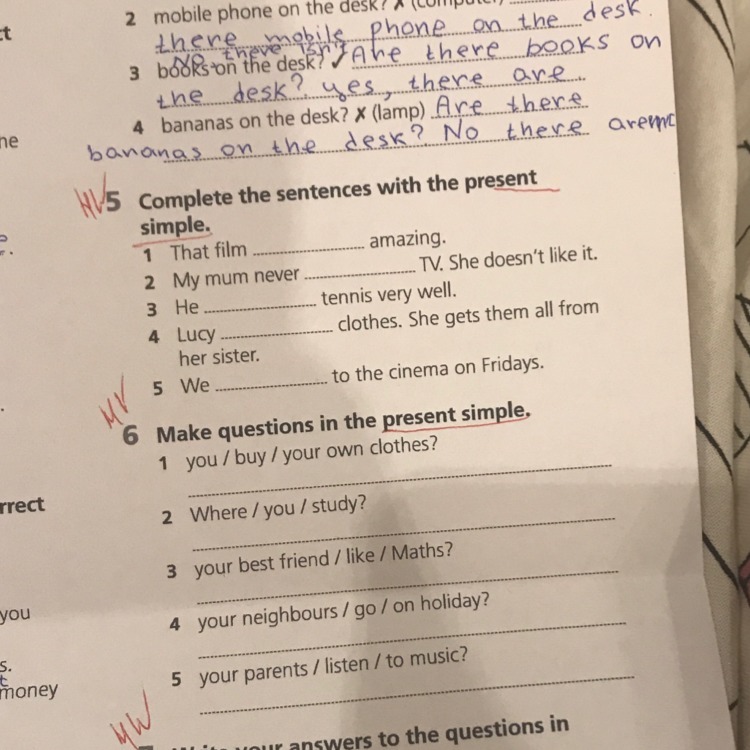 2 mobile phone on the desk? ✗
there mobile phone on the desk.
No there isn't
3 books on the desk? ✓ Are there books on
the desk? yes, there are
4 bananas on the desk? ✗ (lamp) Are there
bananas on the desk? No there
5 Complete the sentences with the present
simple.
1 That film ............ amazing.
2 My mum never ............ TV. She doesn't like it.
3 He ............ tennis very well.
4 Lucy ............ clothes. She gets them all from
her sister.
5 We ............ to the cinema on Fridays.
6 Make questions in the present simple.
1 you / buy / your own clothes?
2 Where / you / study?
3 your best friend / like / Maths?
4 your neighbours / go / on holiday?
5 your parents / listen / to music?
your answers to the questions in
rrect
you
s.
money